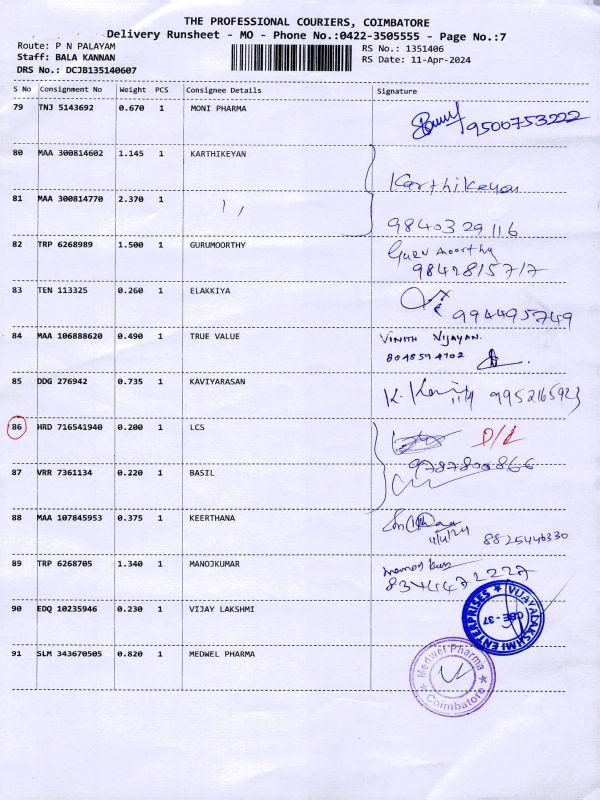 THE PROFESSIONAL COURIERS, COIMBATORE
Delivery Runsheet - MO - Phone No.:0422-3505555 - Page No.:7
Route: P N PALAYAM
RS No.: 1351406
Staff: BALA KANNAN
RS Date: 11-Apr-2024
DRS No.: DCJB135140607
S No Consignment No Weight PCS Consignee Details Signature
79 TNJ 5143692 0.670 1 MONI PHARMA
9500753222
80 MAA 300814602 1.145 1 KARTHIKEYAN
Karthikeyan
81 MAA 300814770 2.370 1 ,,
9840329116
82 TRP 6268989 1.500 1 GURUMOORTHY Guru moorthy
9842815717
83 TEN 113325 0.260 1 ELAKKIYA
9944495749
84 MAA 106888620 0.490 1 TRUE VALUE VINITH VIJAYAN.
8048594702
85 DDG 276942 0.735 1 KAVIYARASAN
K. 11/4 9952165923
86 HRD 716541940 0.200 1 LCS D/L
9787800866
87 VRR 7361134 0.220 1 BASIL
88 MAA 107845953 0.375 1 KEERTHANA
11/4/24 8825446330
89 TRP 6268705 1.340 1 MANOJKUMAR
8344472227
90 EDQ 10235946 0.230 1 VIJAY LAKSHMI
VIJAYALAKSHMI ENTERPRISES
CBE - 37
91 SLM 343670505 0.820 1 MEDWEL PHARMA
Medwel Pharma
Coimbatore